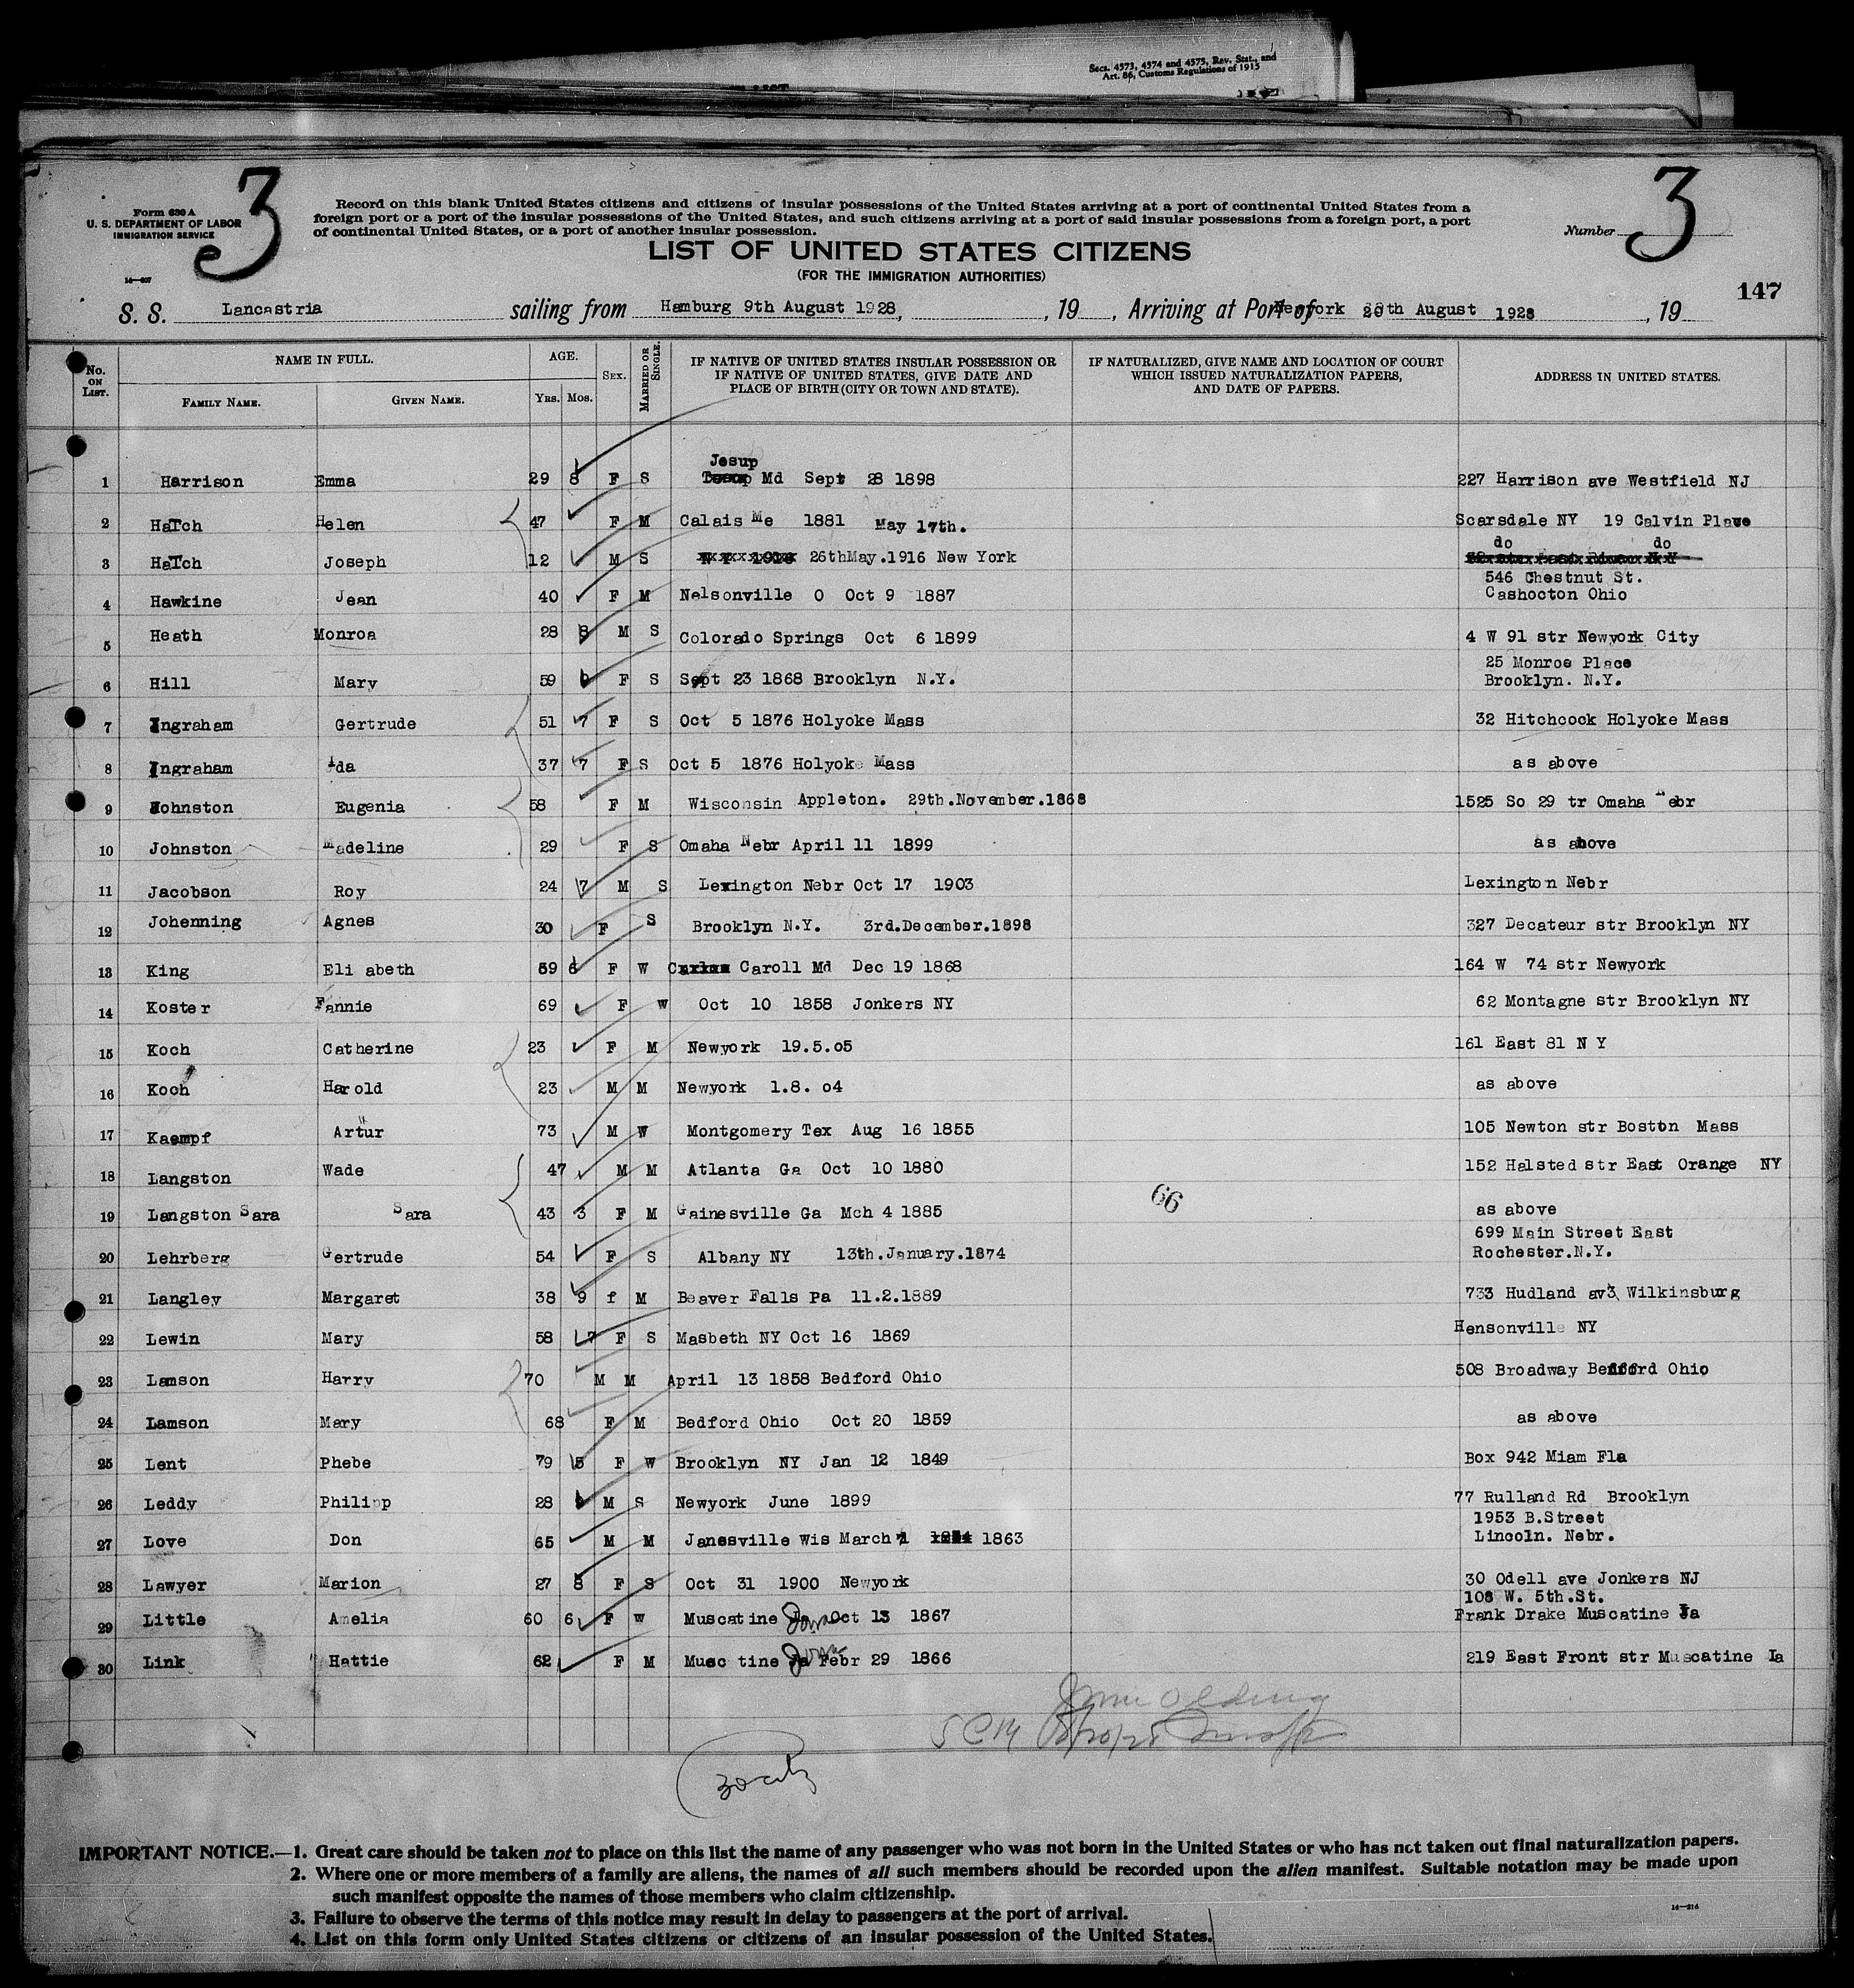 Secs. 4573, 4574 and 4575, Rev. Stat., and
Art. 86, Customs Regulations of 1915
3
3
Form 630 A
U. S. DEPARTMENT OF LABOR
IMMIGRATION SERVICE
Record on this blank United States citizens and citizens of insular possessions of the United States arriving at a port of continental United States from a
foreign port or a port of the insular possessions of the United States, and such citizens arriving at a port of said insular possessions from a foreign port, a port
of continental United States, or a port of another insular possession.
Number
LIST OF UNITED STATES CITIZENS
(FOR THE IMMIGRATION AUTHORITIES)
147
S. S. Lancastria sailing from Hamburg 9th August 1928, , 19 , Arriving at Port of Newyork 20th August 1928 , 19
No. ON LIST. NAME IN FULL. FAMILY NAME. GIVEN NAME. AGE. YRS. MOS. SEX. MARRIED OR SINGLE. IF NATIVE OF UNITED STATES INSULAR POSSESSION OR IF NATIVE OF UNITED STATES, GIVE DATE AND PLACE OF BIRTH (CITY OR TOWN AND STATE). IF NATURALIZED, GIVE NAME AND LOCATION OF COURT WHICH ISSUED NATURALIZATION PAPERS, AND DATE OF PAPERS. ADDRESS IN UNITED STATES.
Jesup
1 Harrison Emma 29 8 F S Md Sept 28 1898 227 Harrison ave Westfield NJ
2 Hatch Helen 47 F M Calais Me 1881 May 17th. Scarsdale NY 19 Calvin Place
do do
3 Hatch Joseph 12 M S 26thMay.1916 New York
546 Chestnut St.
4 Hawkine Jean 40 F M Nelsonville O Oct 9 1887 Cashocton Ohio
5 Heath Monroa 28 8 M S Colorado Springs Oct 6 1899 4 W 91 str Newyork City
25 Monroe Place
6 Hill Mary 59 F S Sept 23 1868 Brooklyn N.Y. Brooklyn. N.Y.
7 Ingraham Gertrude 51 7 F S Oct 5 1876 Holyoke Mass 32 Hitchcock Holyoke Mass
8 Ingraham Ida 37 7 F S Oct 5 1876 Holyoke Mass as above
9 Johnston Eugenia 58 F M Wisconsin Appleton. 29th.November.1868 1525 So 29 tr Omaha Nebr
10 Johnston Madeline 29 F S Omaha Nebr April 11 1899 as above
11 Jacobson Roy 24 7 M S Lexington Nebr Oct 17 1903 Lexington Nebr
12 Johenning Agnes 30 F S Brooklyn N.Y. 3rd.December.1898 327 Decateur str Brooklyn NY
13 King Eli abeth 59 6 F W Caroll Md Dec 19 1868 164 W 74 str Newyork
14 Koster Fannie 69 F W Oct 10 1858 Jonkers NY 62 Montagne str Brooklyn NY
15 Koch Catherine 23 F M Newyork 19.5.05 161 East 81 N Y
16 Koch Harold 23 M M Newyork 1.8. 04 as above
17 Kaempf Artur 73 M W Montgomery Tex Aug 16 1855 105 Newton str Boston Mass
18 Langston Wade 47 M M Atlanta Ga Oct 10 1880 152 Halsted str East Orange NY
66
19 Langston Sara Sara 43 3 F M Gainesville Ga Mch 4 1885 as above
699 Main Street East
20 Lehrberg Gertrude 54 F S Albany NY 13th.January.1874 Rochester.N.Y.
21 Langley Margaret 38 9 f M Beaver Falls Pa 11.2.1889 733 Hudland av3 Wilkinsburg
22 Lewin Mary 58 7 F S Masbeth NY Oct 16 1869 Hensonville NY
23 Lamson Harry 70 M M April 13 1858 Bedford Ohio 508 Broadway Bedford Ohio
24 Lamson Mary 68 F M Bedford Ohio Oct 20 1859 as above
25 Lent Phebe 79 5 F W Brooklyn NY Jan 12 1849 Box 942 Miam Fla
26 Leddy Philipp 28 M S Newyork June 1899 77 Rulland Rd Brooklyn
1953 B.Street
27 Love Don 65 M M Janesville Wis March 1 1863 Lincoln. Nebr.
28 Lawyer Marion 27 8 F S Oct 31 1900 Newyork 30 Odell ave Jonkers NJ
108 W. 5th.St.
29 Little Amelia 60 6 F W Muscatine Iowa Oct 13 1867 Frank Drake Muscatine Ia
30 Link Hattie 62 F M Musc tine Iowa Febr 29 1866 219 East Front str Muscatine Ia
IMPORTANT NOTICE.—1. Great care should be taken not to place on this list the name of any passenger who was not born in the United States or who has not taken out final naturalization papers.
2. Where one or more members of a family are aliens, the names of all such members should be recorded upon the alien manifest. Suitable notation may be made upon
such manifest opposite the names of those members who claim citizenship.
3. Failure to observe the terms of this notice may result in delay to passengers at the port of arrival.
4. List on this form only United States citizens or citizens of an insular possession of the United States.